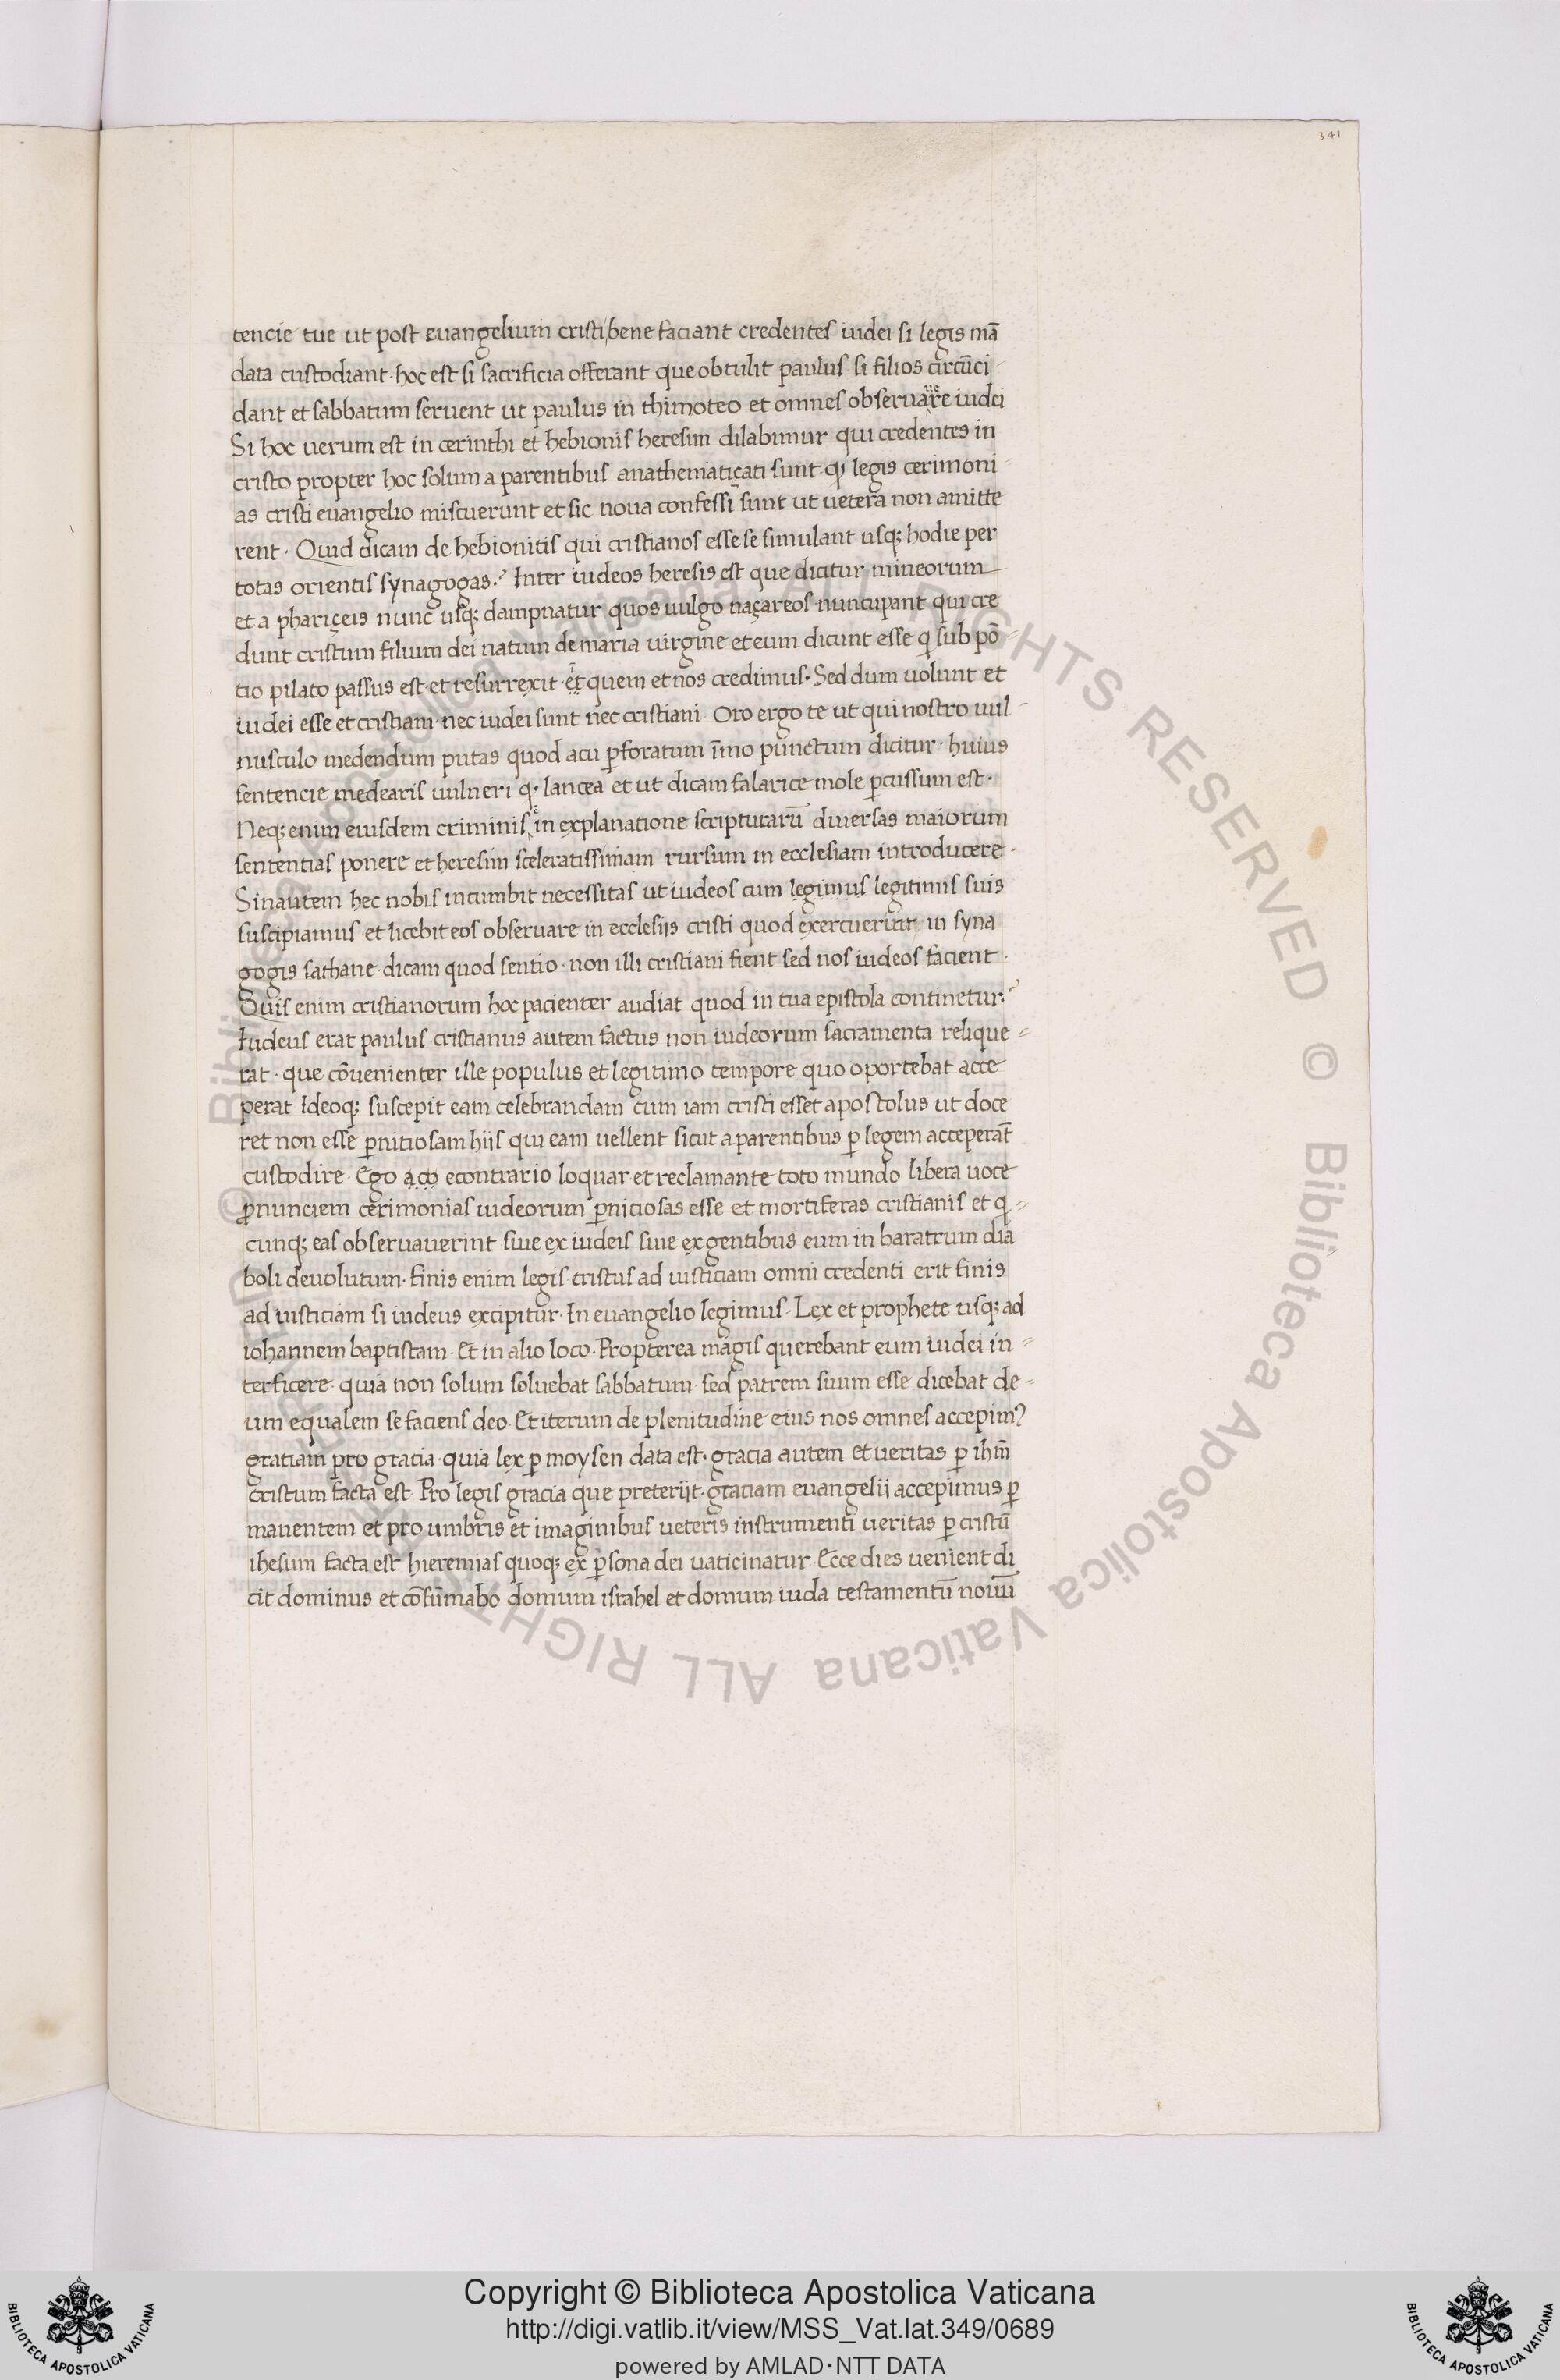 341
tencie tue ut post euangelium cristi/bene faciant credentes iudei si legis mā
data custodiant· hoc est si sacrificia offerant que obtulit paulus· si filios circūci-
dant et sabbatum seruent ut paulus in thimoteo et omnes obseruare iudei
Si hoc uerum est in cerinthi et hebionis heresim dilabimur qui credentes in
cristo propter hoc solum a parentibus anathematiçati sunt· q; legis cerimoni-
as cristi euangelio miscuerunt et sic noua confessi sunt ut uetera non amitte
rent· Quid dicam de hebionitis qui cristianos esse se simulant usq; hodie per
totas orientis synagogas·? Inter iudeos heresis est que dicitur mineorum
et a phariçeis nunc usq; dampnatur quos uulgo naçareos nuncupant qui cre
dunt cristum filium dei natum de maria uirgine et eum dicunt esse q sub pō-
tio pilato passus est· et resurrexit· et quem et nos credimus· Sed dum uolunt et
iudei esse et cristiani· nec iudei sunt nec cristiani· Oro ergo te ut qui nostro uul-
nusculo medendum putas quod acu p̄foratum īmo punctum dicitur· huius
sentencie medearis uulneri q· lancea et ut dicam falarice mole p̄cussum est·
Neq; enim eiusdem criminis ē in explanatione scripturarū diuersas maiorum
sententias ponere et heresim sceleratissimam rursum in ecclesiam introducere·
Sinautem hec nobis incumbit necessitas ut iudeos cum legimus legitimis suis
suscipiamus et licebit eos obseruare in ecclesijs cristi quod exercuerunt in syna
gogis sathane· dicam quod sentio· non illi cristiani fient sed nos iudeos facient·
Quis enim cristianorum hoc pacienter audiat quod in tua epistola continetur·?
Iudeus erat paulus· cristianus autem factus non iudeorum sacramenta relique-
rat· que cōuenienter ille populus et legitimo tempore quo oportebat acce
perat Ideoq; suscepit eam celebrandam cum iam cristi esset apostolus ut doce
ret non esse p̄nitiosam hijs qui eam uellent sicut a parentibus p̄ legem acceperāt
custodire· Ego aco econtrario loquar· et reclamante toto mundo libera uoce
ꝓnunciem cerimonias iudeorum p̄niciosas esse et mortiferas cristianis et q-
cunq; eas obseruauerint siue ex iudeis siue ex gentibus eum in baratrum dia
boli deuolutum· finis enim legis cristus ad iusticiam omni credenti erit finis
ad iusticiam si iudeus excipitur· In euangelio legimus· Lex et prophete usq; ad
iohannem baptistam· Et in alio loco· Propterea magis querebant eum iudei in-
terficere· quia non solum soluebat sabbatum· sed patrem suum esse dicebat de-
um equalem se faciens deo· Et iterum de plenitudine eius nos omnes accepim⁹
gratiam pro gracia· quia lex p̄ moysen data est· gracia autem et ueritas p̄ ihm̄
cristum facta est· Pro legis gracia que preterijt· graciam euangelii accepimus p̄
manentem et pro umbris et imaginibus ueteris instrumenti ueritas p̄ cristū
ihesum facta est· hieremias quoq; ex p̄sona dei uaticinatur· Ecce dies uenient di
cit dominus et cōsūmabo domum israhel et domum iuda testamentū nouū
Copyright © Biblioteca Apostolica Vaticana
http://digi.vatlib.it/view/MSS_Vat.lat.349/0689
powered by AMLAD·NTT DATA
BIBLIOTECA APOSTOLICA VATICANA
BIBLIOTECA APOSTOLICA VATICANA
© Biblioteca Apostolica Vaticana ALL RIGHTS RESERVED © Biblioteca Apostolica Vaticana ALL RIGHTS RESERVED